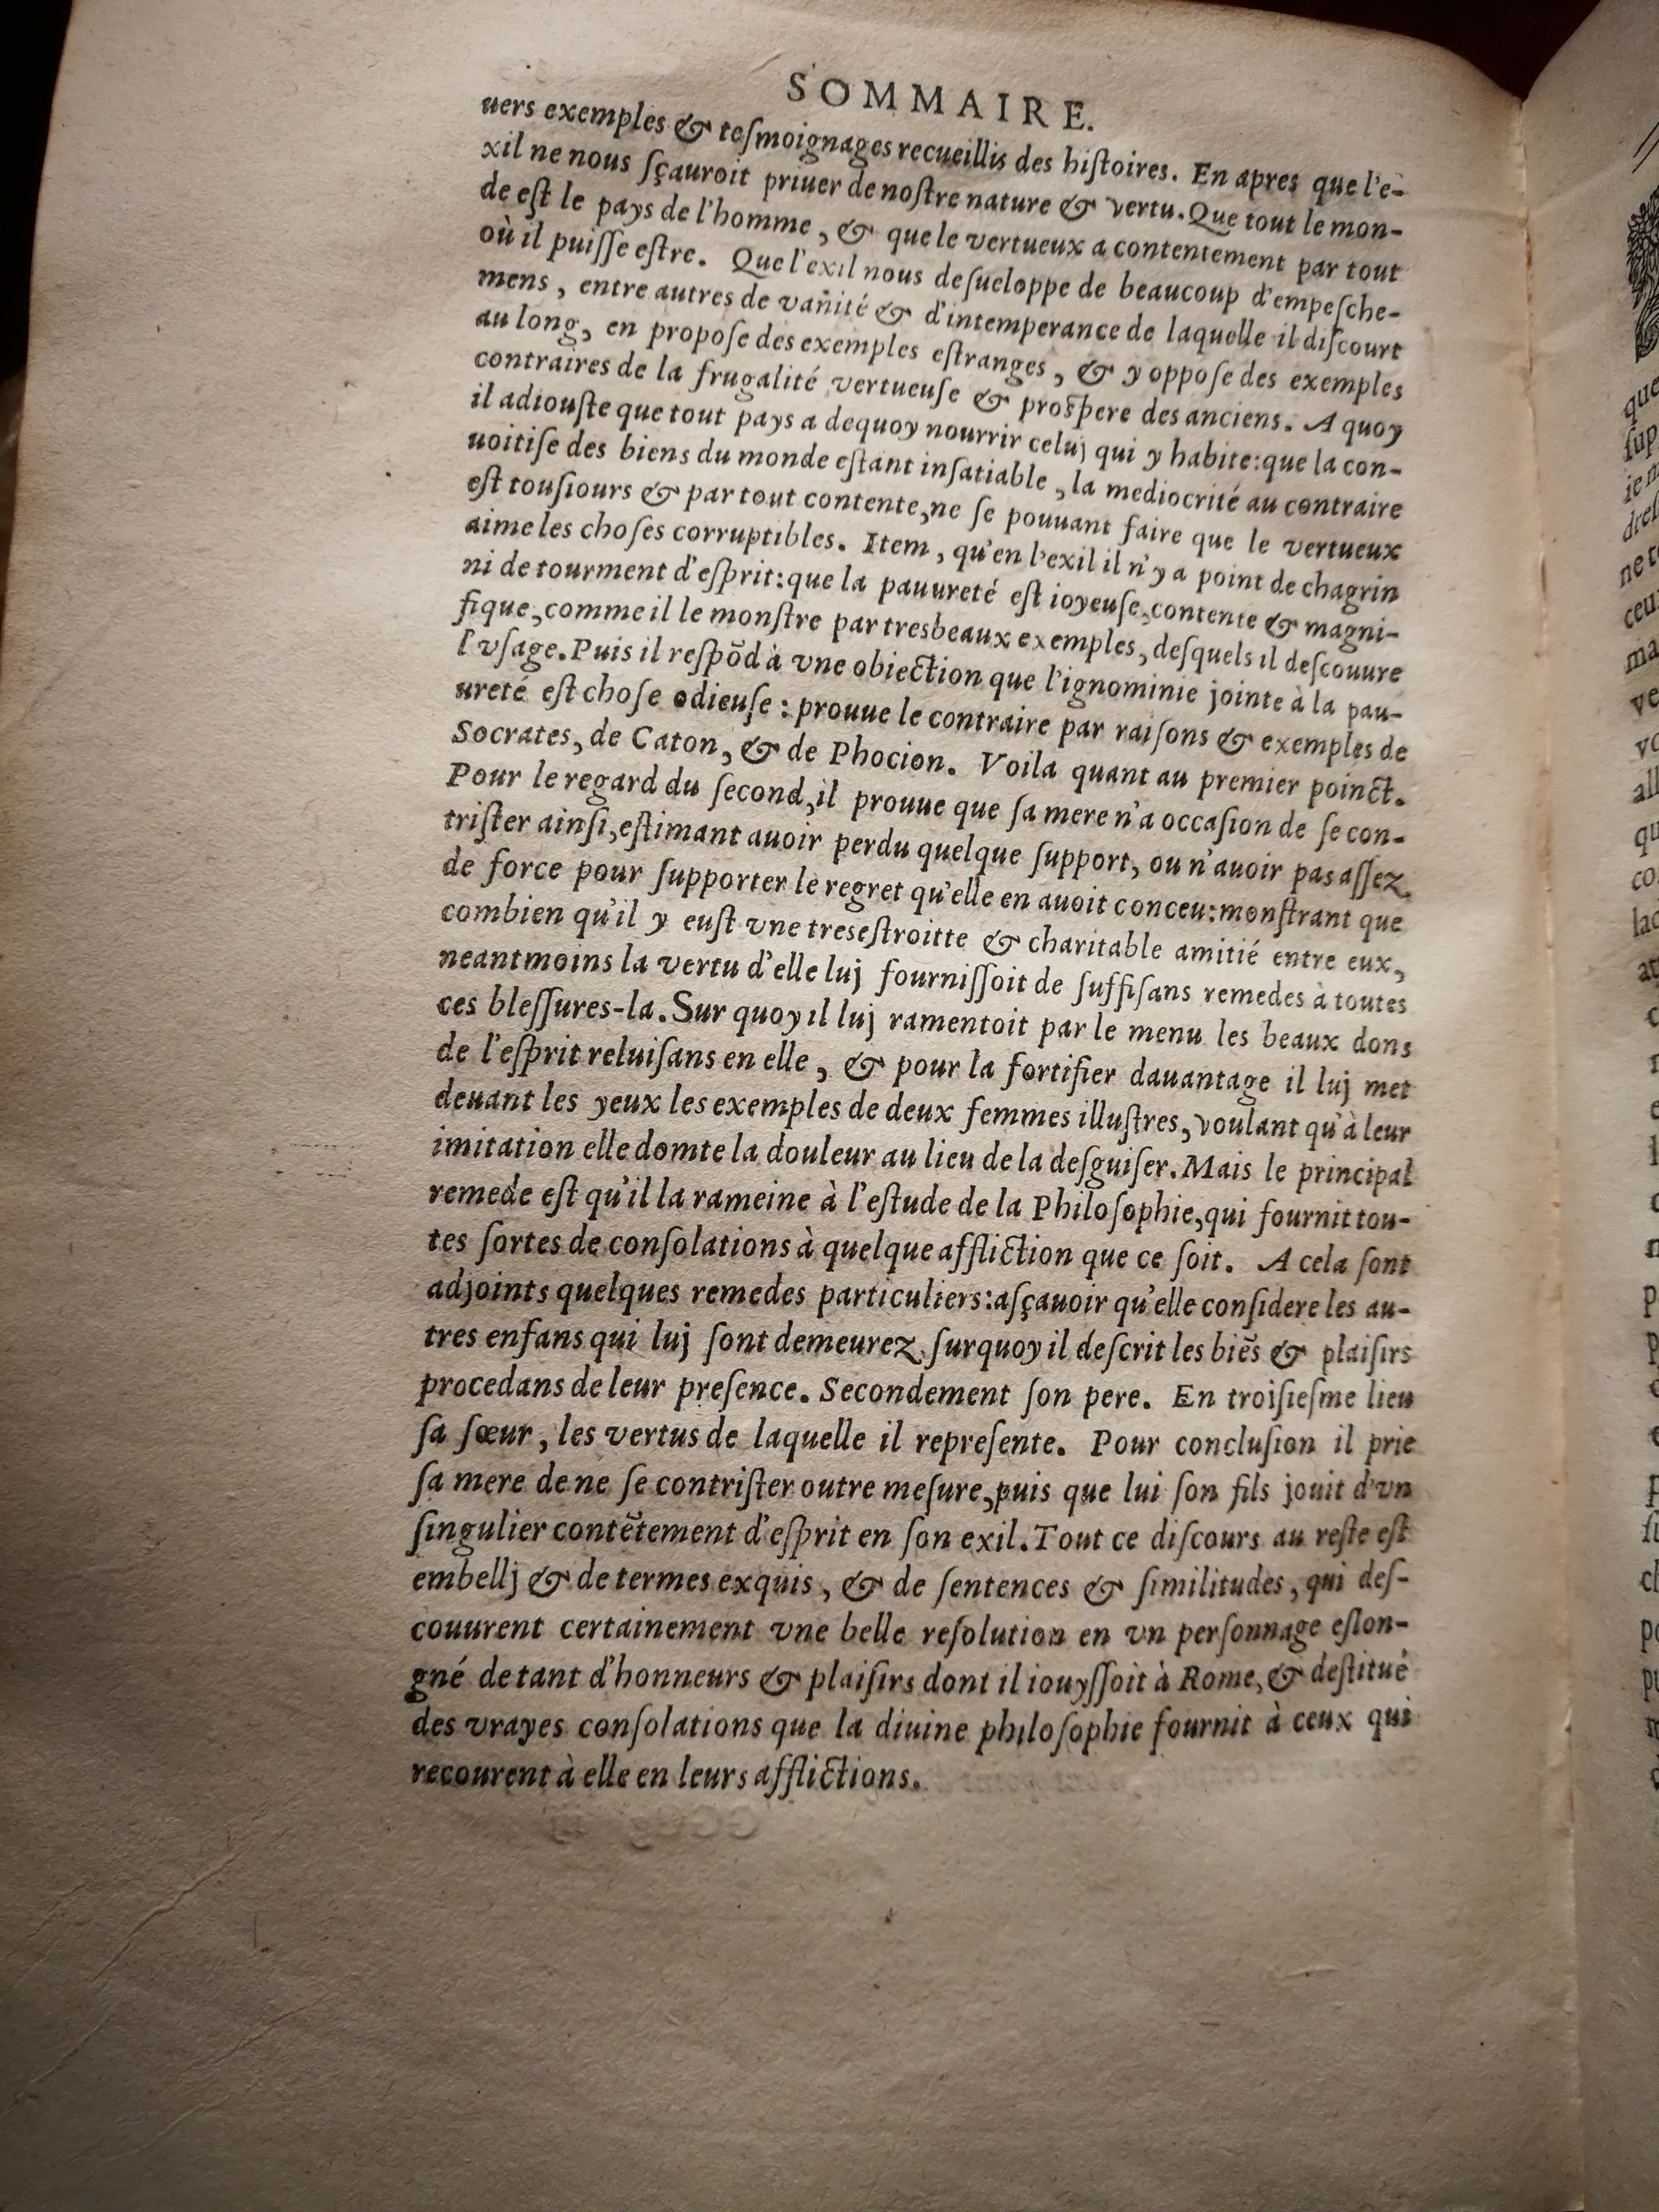 SOMMAIRE.
uers exemples & teſmoignages recueillis des hiſtoires. En apres que l'e-
xil ne nous ſçauroit priuer de noſtre nature & vertu. Que tout le mon-
de eſt le pays de l'homme, & que le vertueux a contentement par tout
où il puiſſe eſtre. Que l'exil nous deſueloppe de beaucoup d'empeſche-
mens, entre autres de vanité & d'intemperance de laquelle il diſcourt
au long, en propoſe des exemples eſtranges, & y oppoſe des exemples
contraires de la frugalité vertueuſe & proſpere des anciens. A quoy
il adiouſte que tout pays a dequoy nourrir celuj qui y habite: que la con-
uoitiſe des biens du monde eſtant inſatiable, la mediocrité au contraire
eſt touſiours & par tout contente, ne ſe pouuant faire que le vertueux
aime les choſes corruptibles. Item, qu'en l'exil il n'y a point de chagrin
ni de tourment d'eſprit: que la pauureté eſt ioyeuſe, contente & magni-
fique, comme il le monſtre par tresbeaux exemples, deſquels il deſcouure
l'vſage. Puis il reſpōd à vne obiection que l'ignominie jointe à la pau-
ureté eſt choſe odieuſe: prouue le contraire par raiſons & exemples de
Socrates, de Caton, & de Phocion. Voila quant au premier poinct.
Pour le regard du ſecond, il prouue que ſa mere n'a occaſion de ſe con-
triſter ainſi, eſtimant auoir perdu quelque ſupport, ou n'auoir pas aſſez
de force pour ſupporter le regret qu'elle en auoit conceu: monſtrant que
combien qu'il y euſt vne treseſtroitte & charitable amitié entre eux,
neantmoins la vertu d'elle luj fourniſſoit de ſuffiſans remedes à toutes
ces bleſſures-la. Sur quoy il luj ramentoit par le menu les beaux dons
de l'eſprit reluiſans en elle, & pour la fortifier dauantage il luj met
deuant les yeux les exemples de deux femmes illuſtres, voulant qu'à leur
imitation elle domte la douleur au lieu de la deſguiſer. Mais le principal
remede eſt qu'il la rameine à l'eſtude de la Philoſophie, qui fournit tou-
tes ſortes de conſolations à quelque affliction que ce ſoit. A cela ſont
adjoints quelques remedes particuliers: aſçauoir qu'elle conſidere les au-
tres enfans qui luj ſont demeurez. ſurquoy il deſcrit les biẽs & plaiſirs
procedans de leur preſence. Secondement ſon pere. En troiſieſme lieu
ſa ſœur, les vertus de laquelle il repreſente. Pour concluſion il prie
ſa mere de ne ſe contriſter outre meſure, puis que lui ſon fils jouit d'vn
ſingulier contẽtement d'eſprit en ſon exil. Tout ce diſcours au reſte eſt
embellj & de termes exquis, & de ſentences & ſimilitudes, qui deſ-
couurent certainement vne belle reſolution en vn perſonnage eſlon-
gné de tant d'honneurs & plaiſirs dont il iouyſſoit à Rome, & deſtitué
des vrayes conſolations que la diuine philoſophie fournit à ceux qui
recourent à elle en leurs afflictions.